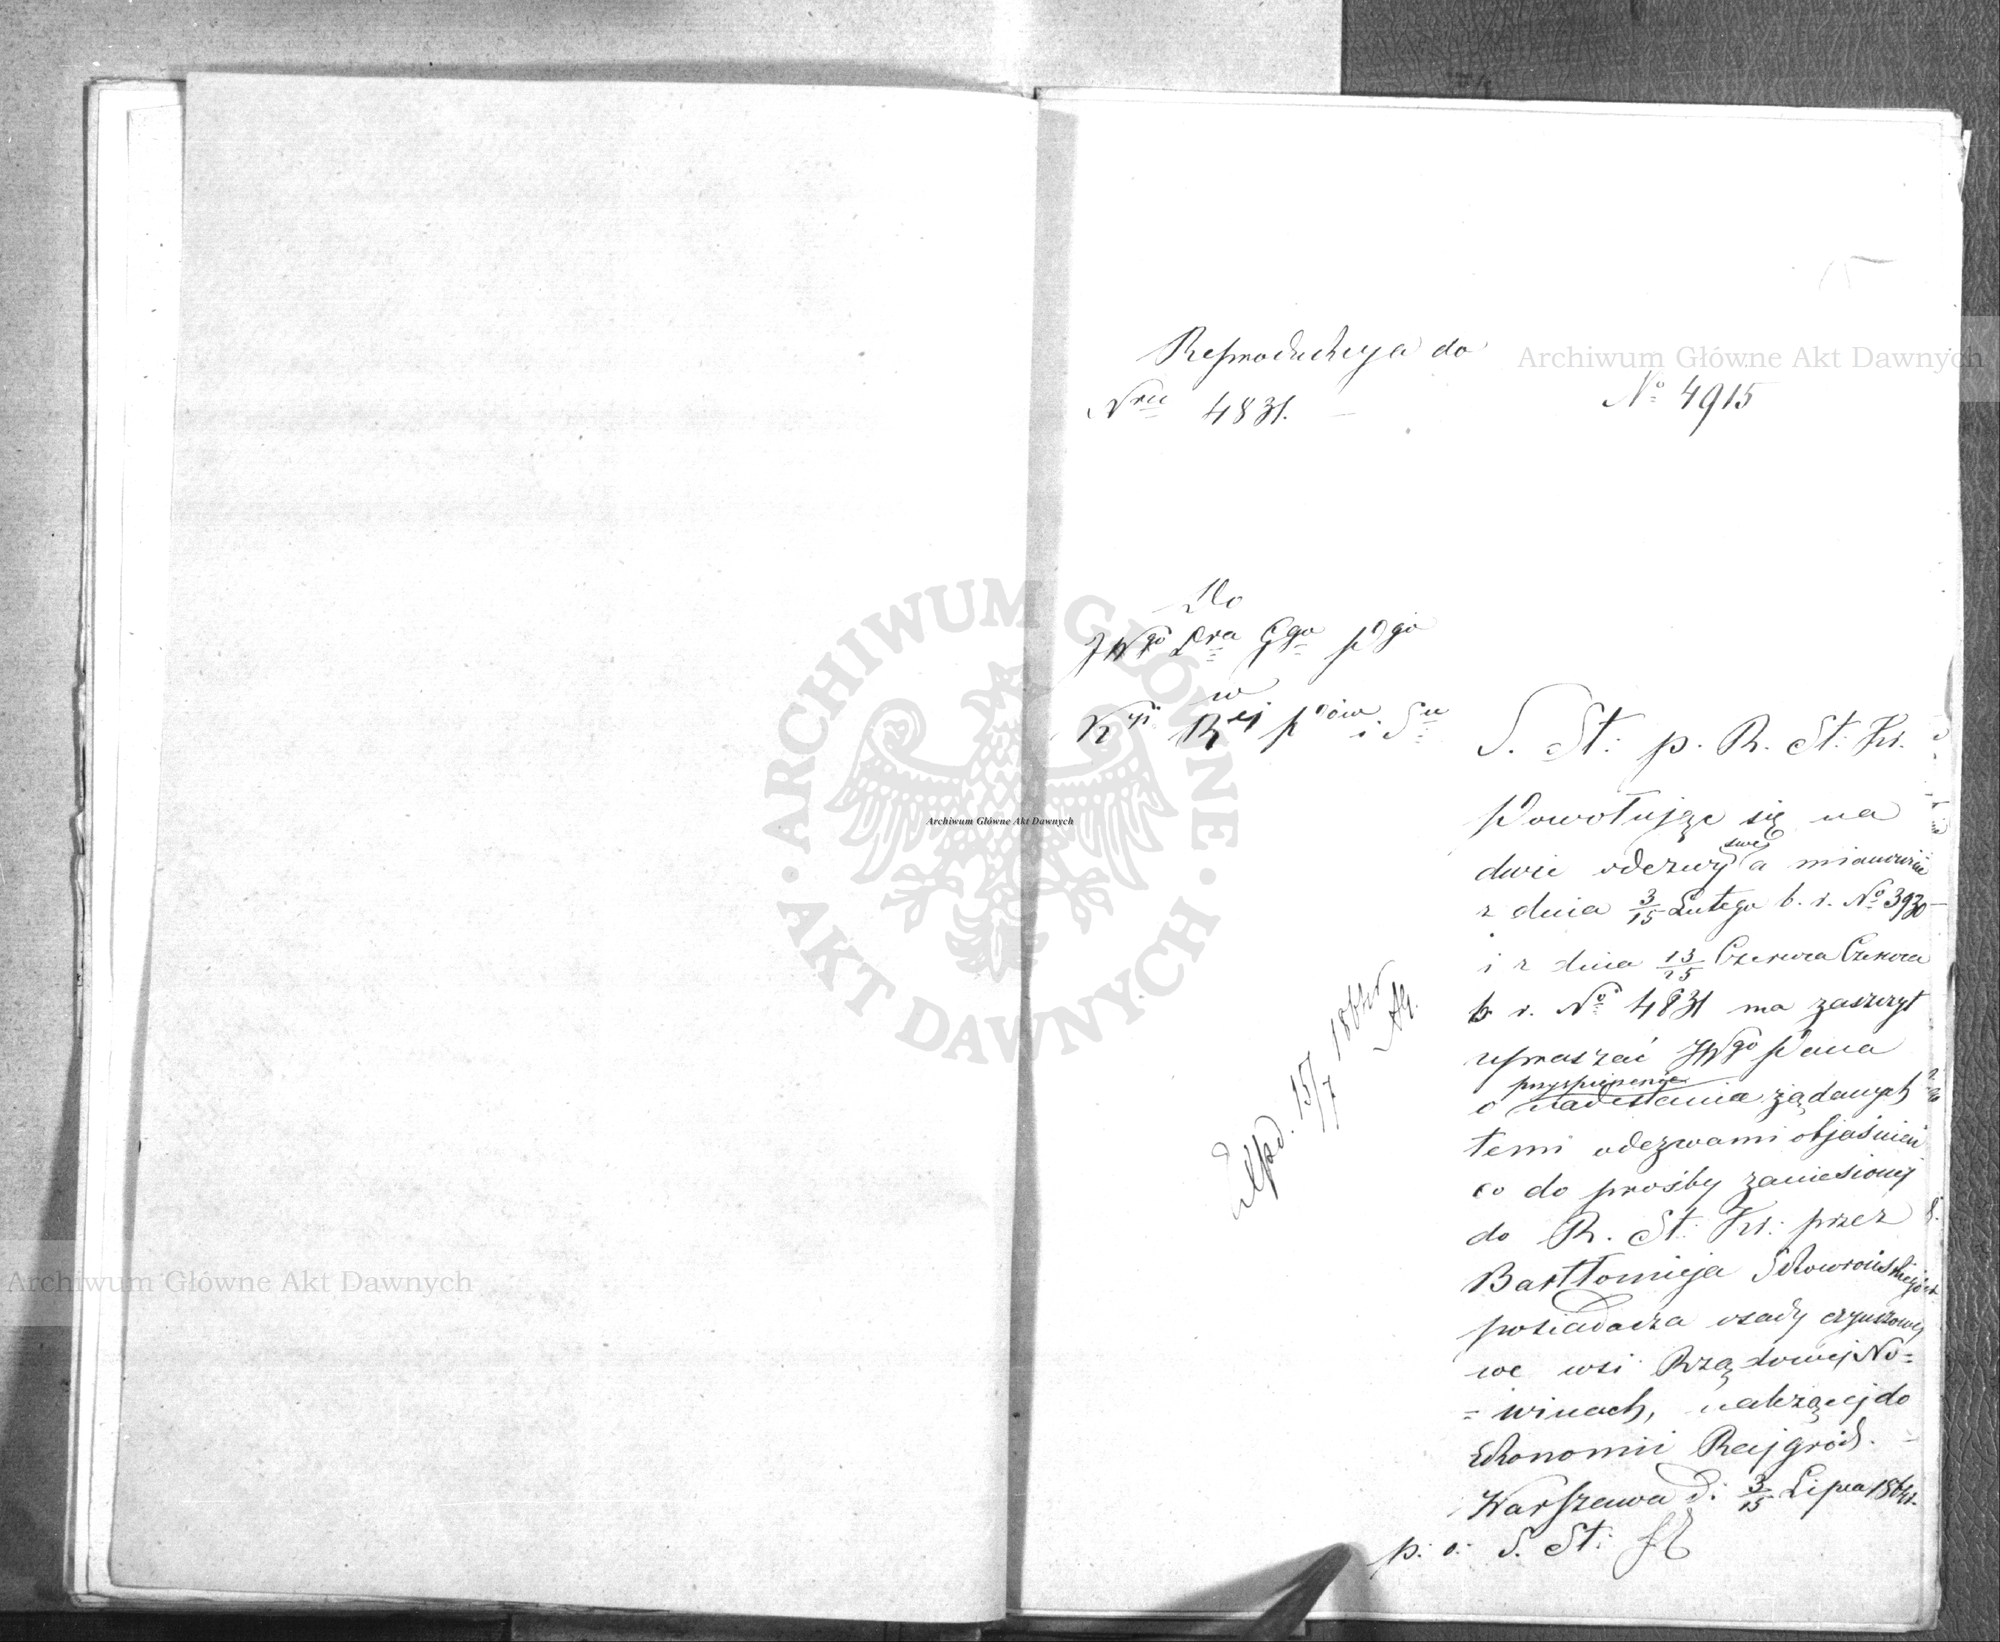 Reprodukcya do
Nru 4831.
No 4915
Do
JWgo Dra Ggo pgo
w
Kyi Rej pów i Su
S. St: p. R. St. Kr.
Powołując się na
dwie odezwy swe a mianowicie
z dnia 3/15 Lutego b. r. No 3930
i z dnia 13/25 Czerwca Czerwca
b. r. No 4831 ma zaszczyt
upraszać JWgo Pana
przyspieszenie
o nadesłania żądanych
temi odezwami objaśnień
co do prośby zaniesionej
do R. St: Kr: przez
Bartłomieja Skowrońskiego
posiadacza osady czynszowej
we wsi Rządowej No=
=winach, należącej do
Ekonomii Rajgród.
Warszawa d: 3/15 Lipca 1864 r.
p. o. S. St:
Exped. 15/7 1864
Archiwum Główne Akt Dawnych
Archiwum Główne Akt Dawnych
Archiwum Główne Akt Dawnych
ARCHIWUM GŁÓWNE
AKT DAWNYCH